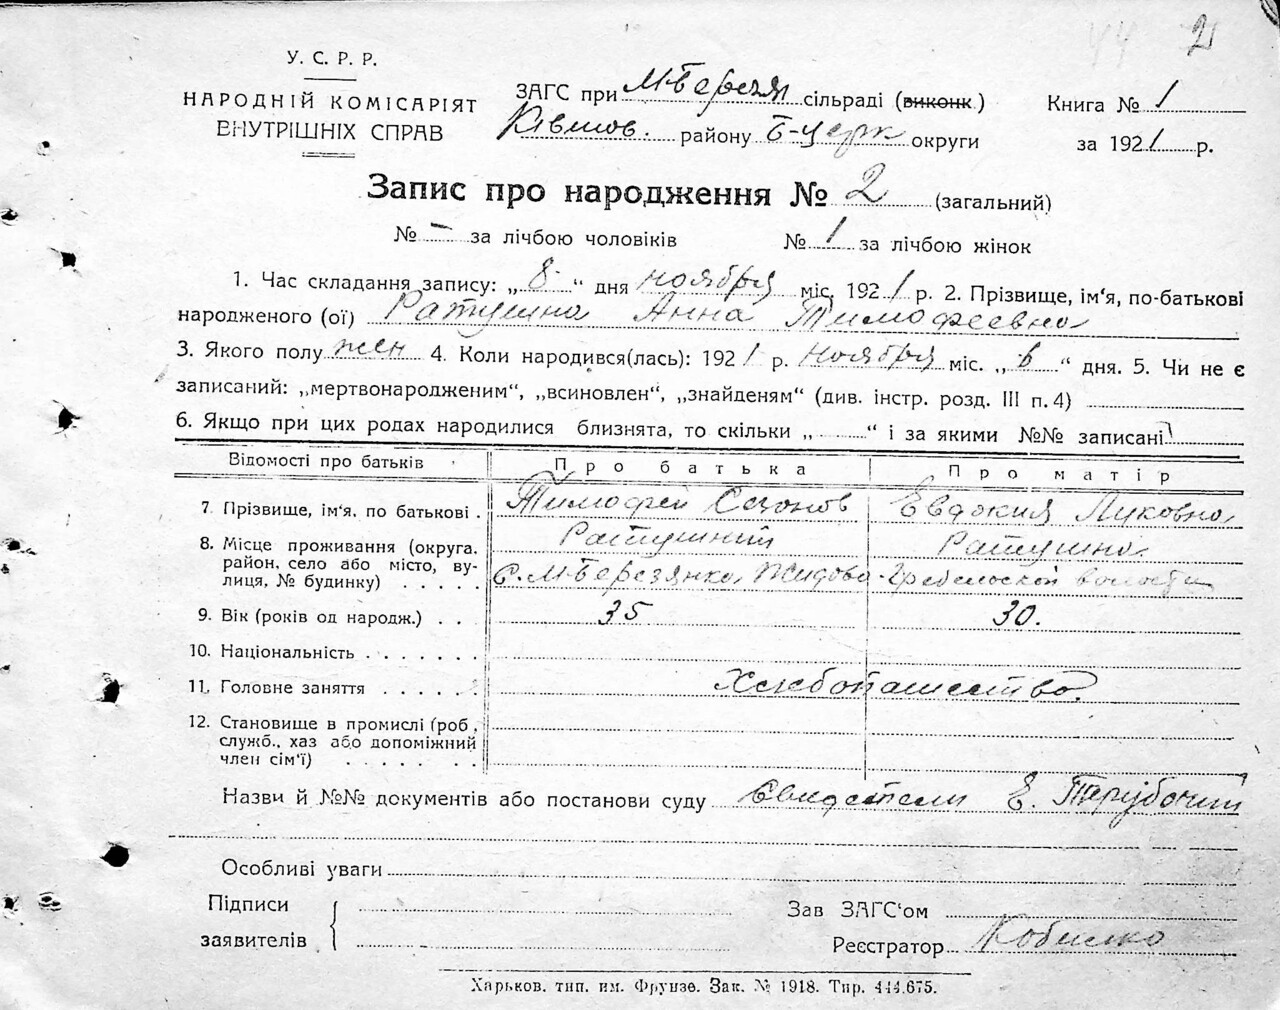 2
У. С. Р. Р.
НАРОДНІЙ КОМІСАРІЯТ
ВНУТРІШНІХ СПРАВ
ЗАГС при М-Березян сільраді (виконк.)
району Б-церк округи
Книга № 1
за 1921 р.
Запис про народження № 2 (загальний)
№ – за лічбою чоловіків № 1 за лічбою жінок
1. Час складання запису: „ 8 “ дня ноября міс. 1921 р. 2. Прізвище, ім‘я, по-батькові
народженого (ої) Ратушна Анна Тимофеевна
3. Якого полу жен 4. Коли народився(лась): 1921 р. ноября міс. „ 6 “ дня. 5. Чи не є
записаний: „мертвонародженим“, „всиновлен“, „знайденям“ (див. інстр. розд. III п. 4)
6. Якщо при цих родах народилися близнята, то скільки „ “ і за якими №№ записані
Відомості про батьків Про батька Про матір
7. Прізвище, ім‘я, по батькові . Тимофей Сазонов Евдокия Луковна
Ратушний Ратушна
8. Місце проживання (округа, район, село або місто, вулиця, № будинку) . . . . с. М-Березянка Жидово-Гребельской волости
9. Вік (років од народж.) . . 35 30.
10. Національність . . . . . . .
11. Головне заняття . . . . . Хлебопашество.
12. Становище в промислі (роб.,
служб., хаз або допоміжний
член сім‘ї) . . . . . .
Назви й №№ документів або постанови суду Свидетели Е. Тарубочий
Особливі уваги
Підписи
заявителів
Зав ЗАГС‘ом
Реєстратор
Харьков. тип. им. Фрунзе. Зак. № 1918. Тир. 444.675.